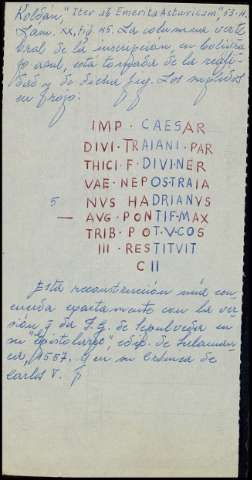 Roldán, "Iter ab Emerita Asturicam", 53-n.
Lám. XX, fig. 45. La columna verte
bral de la inscripción, en bolígra
fo azul, está tomada de la reali
dad y de dicha fig. Los suplidos
en rojo.
IMP · CAESAR
DIVI · TRAIANI · PAR
THICI · F · DIVI · NER
VAE · NEPOS · TRAIA
5 NVS HADRIANVS
AVG · PONTIF · MAX
TRIB · POT · V · COS
III · RESTITVIT
CII
Esta reconstrucción mía coin
cida exactamente con la ver
sión de J. G. de Sepúlveda en
su "Epistolario", de Salaman
ca, 1557, y en su crónica de
Carlos V.